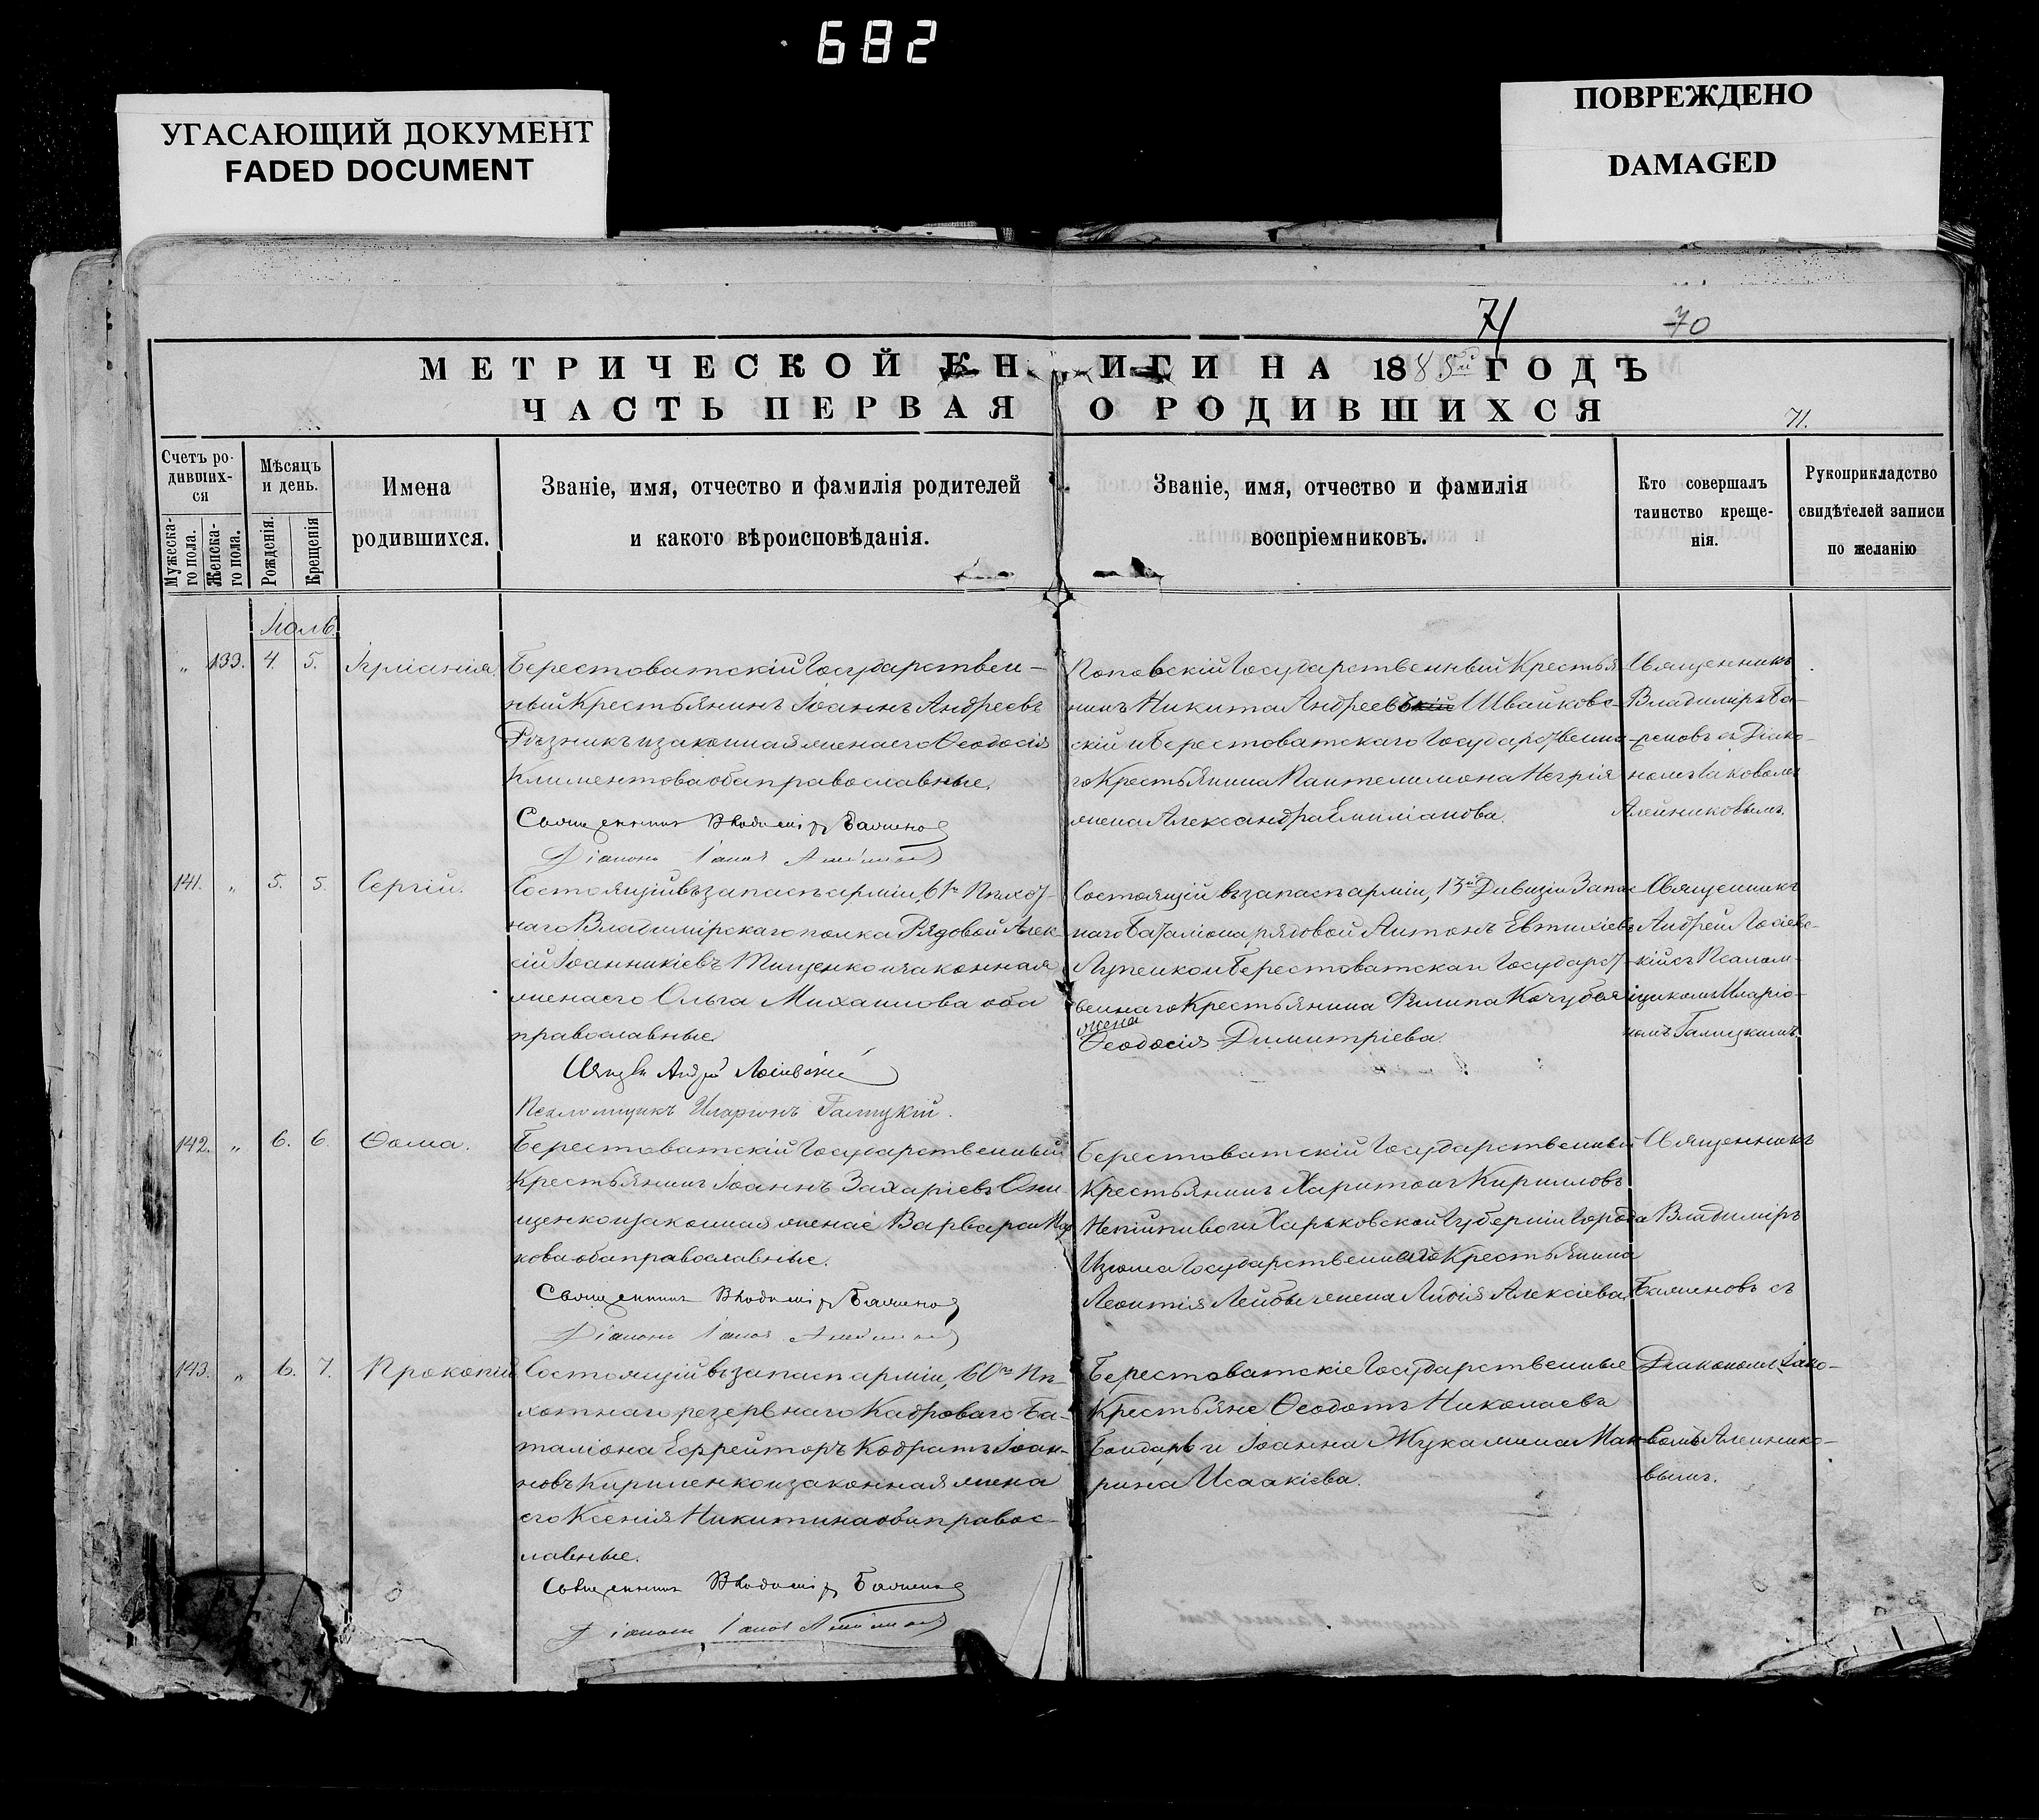 682
УГАСАЮЩИЙ ДОКУМЕНТ
FADED DOCUMENT
ПОВРЕЖДЕНО
DAMAGED
71 70
МЕТРИЧЕСКОЙ КНИГИ НА 188 ГОДЪ
ЧАСТЬ ПЕРВАЯ О РОДИВШИХСЯ
71.
Счетъ ро-
дивших-
ся
Мужеска-
го пола.
Женска-
го пола.
Мѣсяцъ
и день.
Рожденія.
Крещенія
Имена
родившихся.
Званіе, имя, отчество и фамилія родителей
и какого вѣроисповѣданія.
Званіе, имя, отчество и фамилія
воспріемниковъ.
Кто совершалъ
таинство креще-
нія.
Рукоприкладство
свидѣтелей записи
по желанію
Іюль
„ 133. 4. 5.
Берестоватскій Государствен-
ный Крестьянинъ Іоаннъ Андреевъ
Рѣзникъ и законная жена его Ѳеодосія
Климентова оба православные.
Священникъ Владиміръ
Діаконъ Іаковъ
Поповскій Государственный Крестья-
нинъ Никита Андреевъ Швайковс-
скій и Берестоватскаго Государственна-
го Крестьянина Пантелимона Негрія
жена Александра Емиліанова.
Священникъ
Владиміръ Ба-
съ Діако-
номъ Іаковомъ
Алейниковымъ.
141. „ 5. 5. Сергій.
Состоящій въ запасѣ арміи, 61го Пѣхот-
наго Владимірскаго полка Рядовой Алек-
сій Іоанникіевъ Тищенко и законная
жена его Ольга Михаилова оба
православные.
Андрей
Псаломщикъ Иларіонъ Галицкій.
Состоящій въ запасѣ арміи, 13й Дивизіи Запас-
наго Баталіона рядовой Антонъ Евтихіевъ
и Берестоватскаго Государст-
веннаго Крестьянина Филипа Кочубея
жена
Ѳеодосія Димитріева.
Священникъ
Андрей Лосіевс-
кій съ Псалом-
щикомъ Иларіо-
номъ Галицкимъ.
142. „ 6. 6. Ѳома.
Берестоватскій Государственный
Крестьянинъ Іоаннъ Захаріевъ Они-
щенко и законная жена его Варвара
кова оба православные.
Священникъ Владиміръ
Діаконъ Іаковъ
Берестоватскій Государственный
Крестьянинъ Харитонъ Кирилловъ
Непійпиво и Харьковской Губерніи Города
Изюма Государственнаго Крестьянина
Леонтія Лейбы жена Лидія Алексіева.
Священникъ
Владиміръ
съ
143. „ 6. 7. Прокопій
Состоящій въ запасѣ арміи, 60го Пѣ-
хотнаго резервнаго Кадроваго Ба-
таліона Ефрейторъ Кодратъ Іоан-
новъ Кириленко и законная жена
его Ксенія Никитина оба правос-
лавные.
Священникъ Владиміръ
Діаконъ Іаковъ
Берестоватскіе Государственные
Крестьяне Ѳеодотъ Николаевъ
Бондарь и Іоанна Жука жена Мак-
рина Исаакіева.
Діакономъ Іако-
вомъ Алейнико-
вымъ.